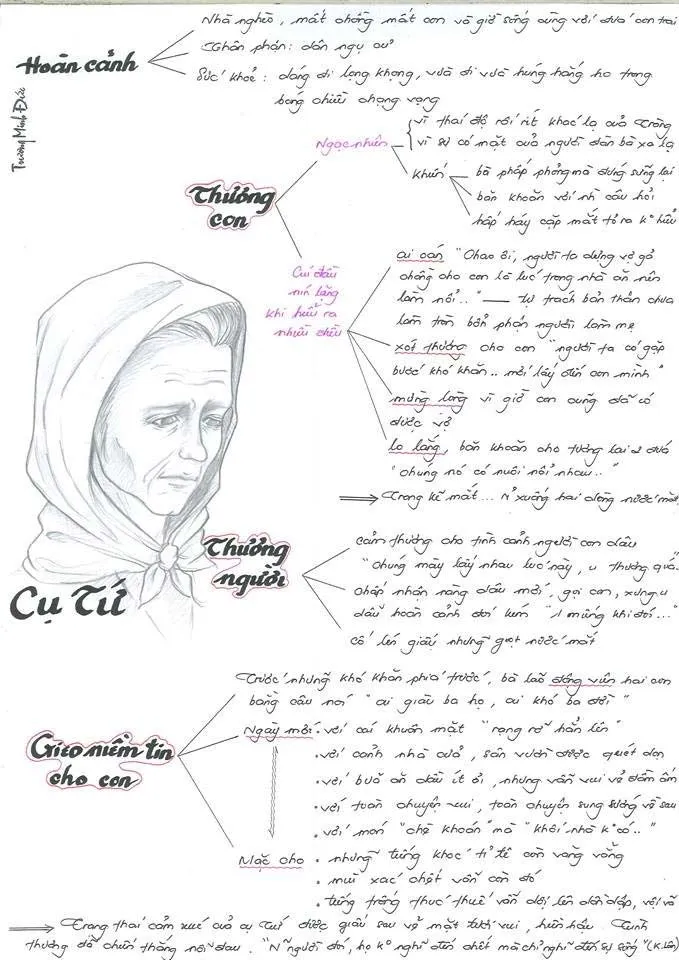 Trương Minh Đức
Hoàn cảnh
Nhà nghèo, mất chồng mất con và giờ sống cùng với đứa con trai
Thân phận: dân ngụ cư
Sức khoẻ: dáng đi lọng khọng, vừa đi vừa húng hắng ho trong
bóng chiều chạng vạng
Thương
con
Ngạc nhiên
vì thái độ rối rít khác lạ của Tràng
vì sự có mặt của người đàn bà xa lạ
khiến
bà phấp phỏng mà đứng sững lại
băn khoăn với nh câu hỏi
hấp háy cặp mắt tỏ ra k° hiểu
Cúi đầu
nín lặng
khi hiểu ra
nhiều điều
ai oán "Chao ôi, người ta dựng vợ gả
chồng cho con là lúc trong nhà ăn nên
làm nổi.." — tự trách bản thân chưa
làm tròn bổn phận người làm mẹ
xót thương cho con "người ta có gặp
bước khó khăn.. mới lấy đến con mình"
mừng lòng vì giờ con cũng đã có
được vợ
lo lắng, băn khoăn cho tương lai 2 đứa
"chúng nó có nuôi nổi nhau.."
⟹ Trong kẽ mắt... rỉ xuống hai dòng nước mắt
Cụ Tứ
Thương
người
cảm thương cho tình cảnh người con dâu
"chúng mày lấy nhau lúc này, u thương quá.
chấp nhận nàng dâu mới, gọi con, xưng u
dẫu hoàn cảnh đói kém
cố lén giấu những giọt nước mắt
Gieo niềm tin
cho con
Trước những khó khăn phía trước, bà lão động viên hai con
bằng câu nói "ai giàu ba họ, ai khó ba đời"
Ngày mới • với cái khuôn mặt "rạng rỡ hẳn lên"
• với cảnh nhà cửa, sân vườn được quét dọn
• với bữa ăn dẫu ít ỏi, nhưng vẫn vui vẻ đầm ấm
• với toàn chuyện vui, toàn chuyện sung sướng về sau
• với món "chè khoán" mà "khối nhà k° có.."
Mặc cho • những tiếng khóc tỉ tê còn vang vẳng
• mùi xác chết vẫn còn đó
• tiếng trống thúc thuế vẫn dội lên dồn dập, vội vã
⟹ Trạng thái cảm xúc của cụ Tứ được giấu sau vẻ mặt tươi vui, hiền hậu. Tình
thương đã chiến thắng nỗi đau. "N~ người đói, họ k° nghĩ đến chết mà chỉ nghĩ đến sự sống" (K.Lân)